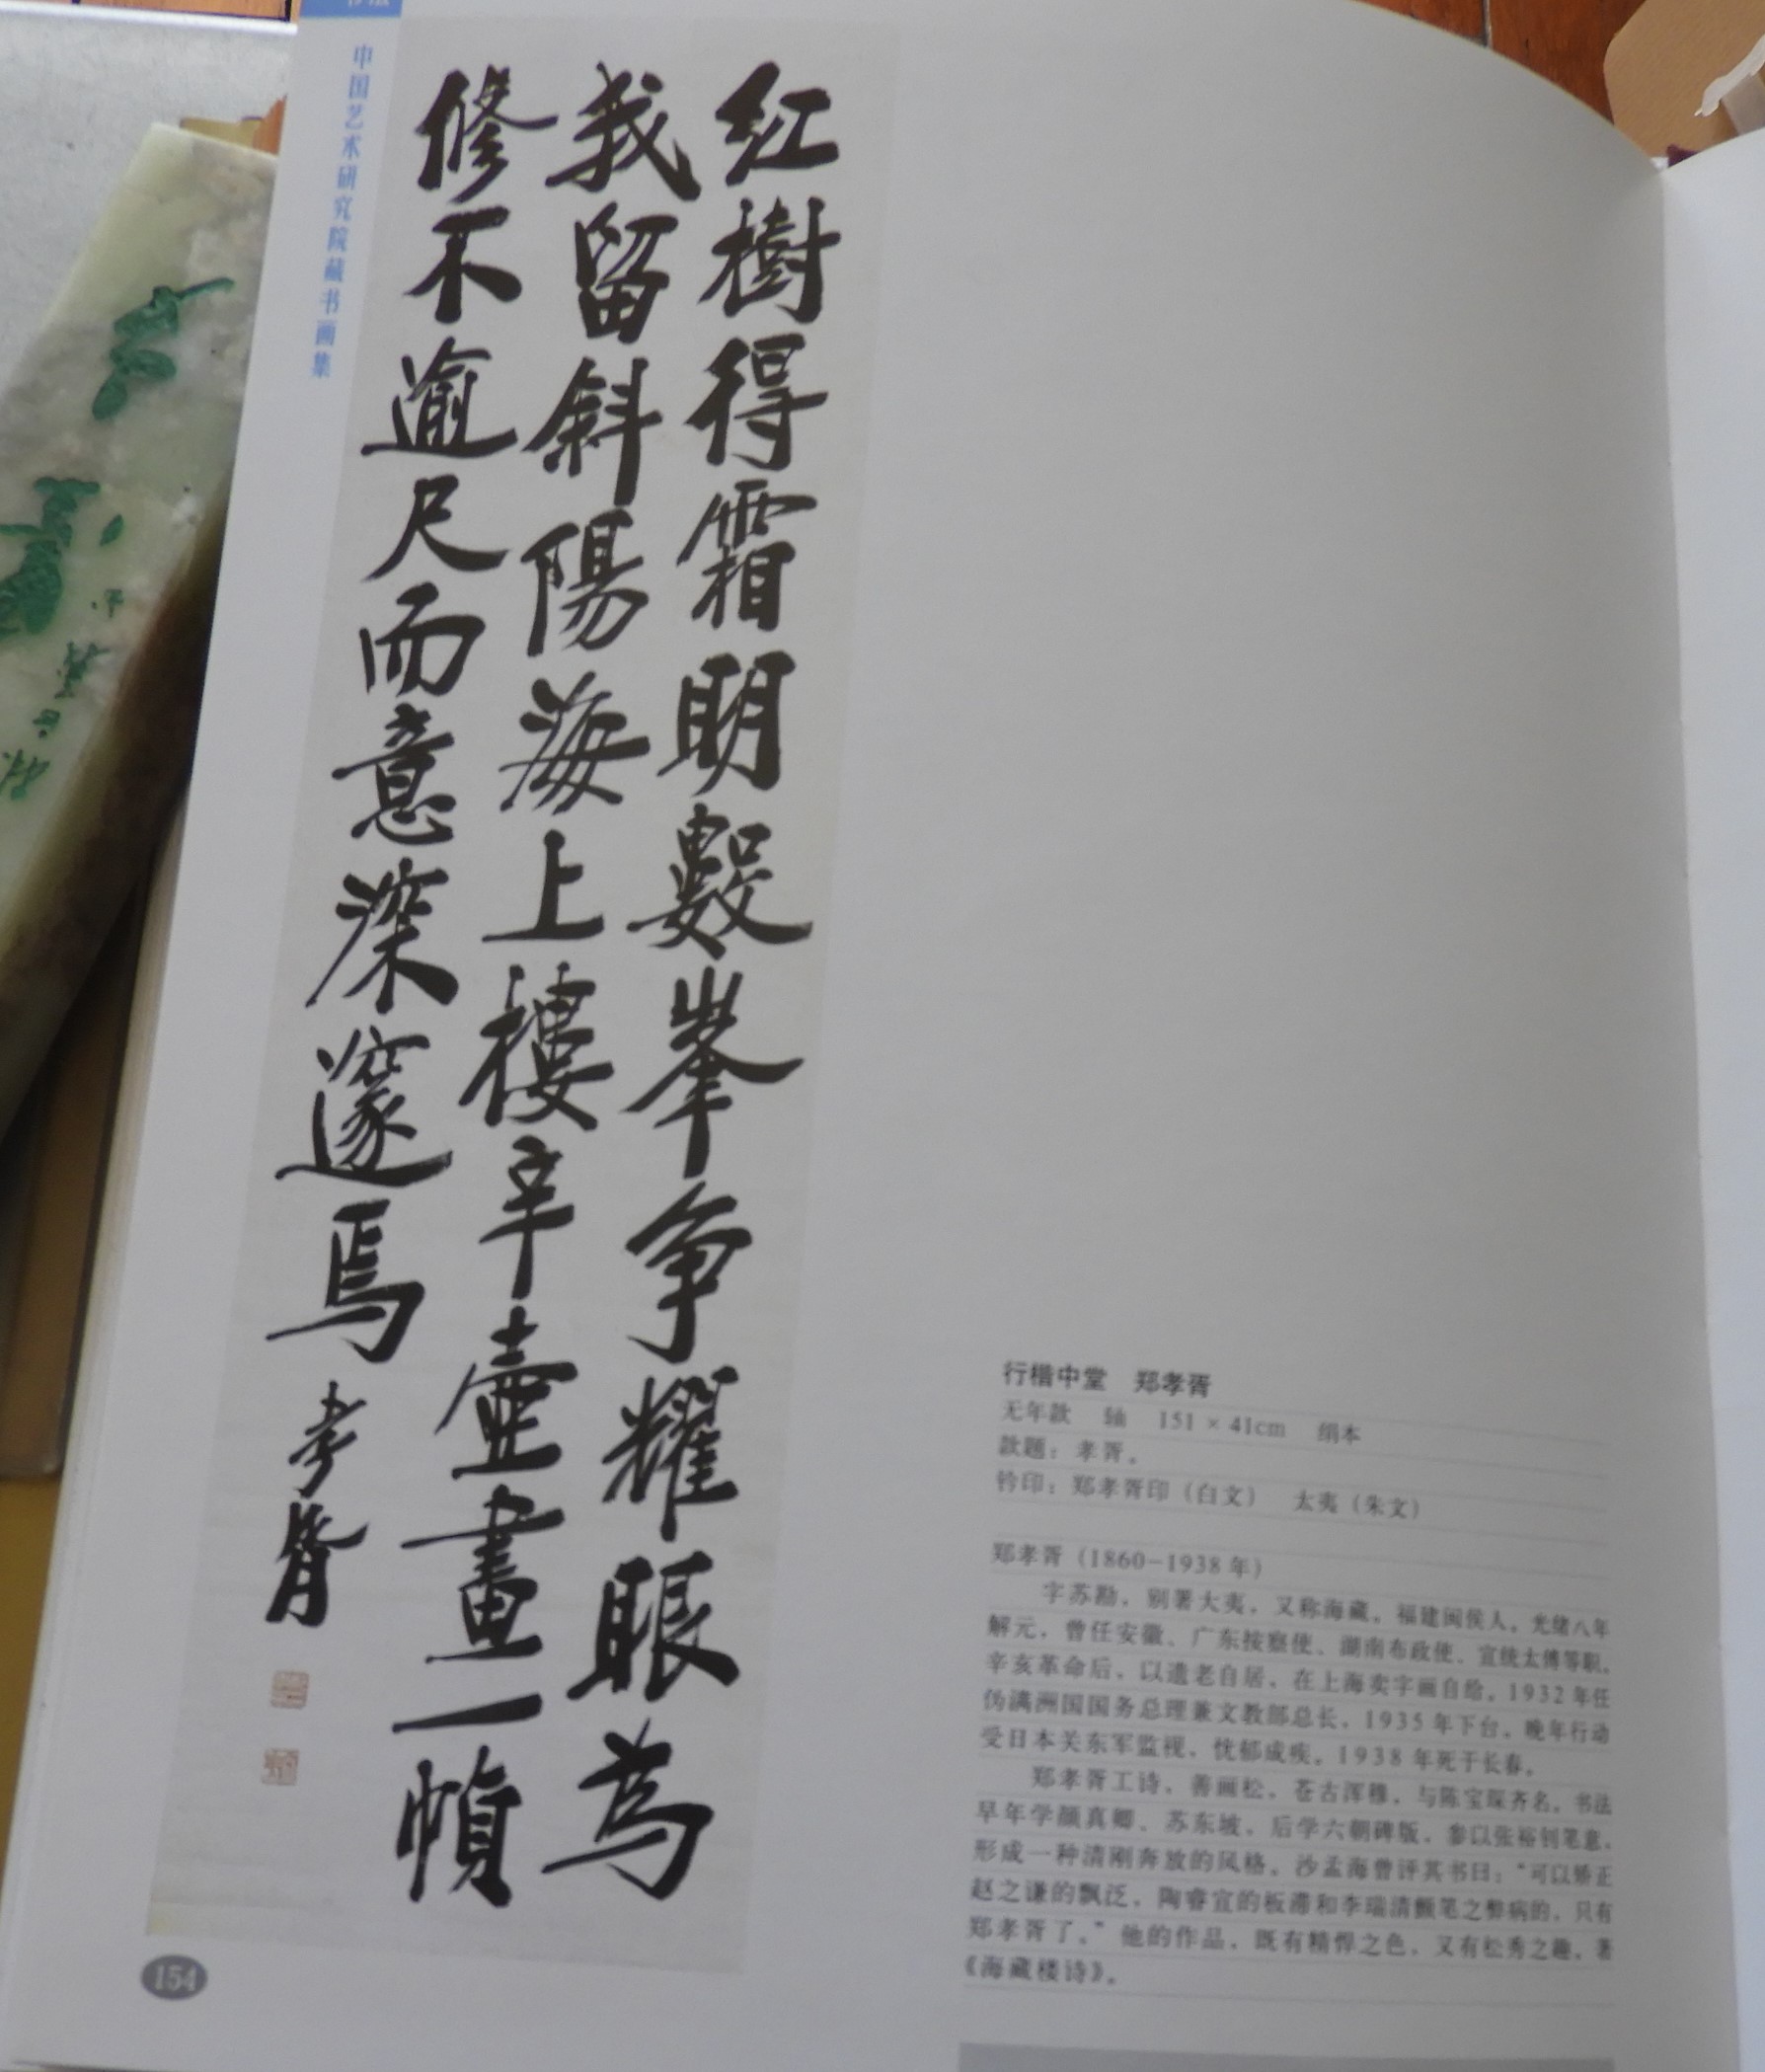 中国艺术研究院藏书画集
红樹得霜明數峯争耀眼為
我留斜陽海上樓辛壺畫一幀
修不逾尺而意深邃焉
孝胥
行楷中堂 郑孝胥
无年款 轴 151×41cm 绢本
款题：孝胥。
钤印：郑孝胥印（白文） 太夷（朱文）
郑孝胥（1860-1938年）
字苏勘，别署大夷，又称海藏。福建闽侯人。光绪八年
解元，曾任安徽、广东按察使、湖南布政使、宣统太傅等职。
辛亥革命后，以遗老自居，在上海卖字画自给。1932年任
伪满洲国国务总理兼文教部总长，1935年下台，晚年行动
受日本关东军监视，忧郁成疾。1938年死于长春。
郑孝胥工诗，善画松，苍古浑穆，与陈宝琛齐名。书法
早年学颜真卿、苏东坡，后学六朝碑版，参以张裕钊笔意，
形成一种清刚奔放的风格。沙孟海曾评其书曰：“可以矫正
赵之谦的飘泛，陶睿宣的板滞和李瑞清颤笔之弊病的，只有
郑孝胥了。”他的作品，既有精悍之色，又有松秀之趣，著
《海藏楼诗》。
154